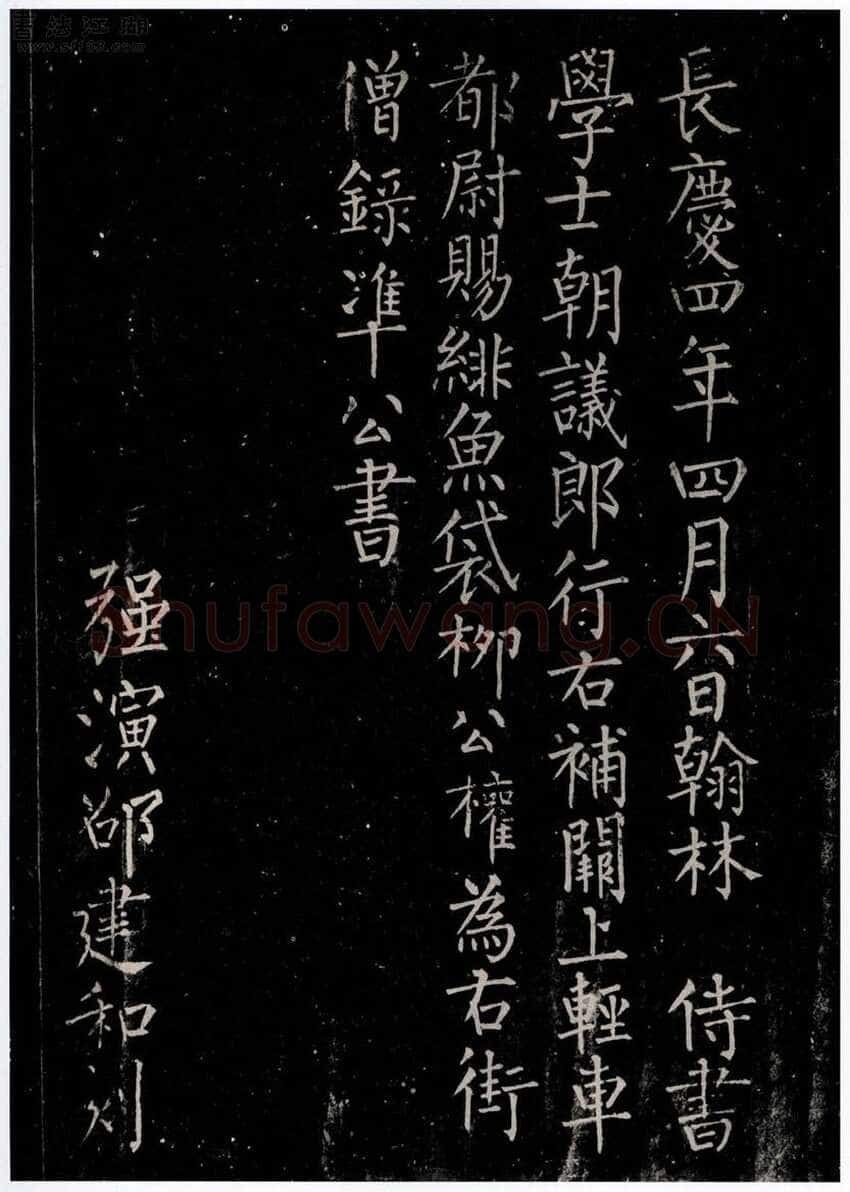 長慶四年四月六日翰林　侍書
學士朝議郎行右補闕上輕車
都尉賜緋魚袋柳公權為右街
僧錄準公書
強演邵建和刻
書法江湖
www.sf39.com
Shufawang.CN